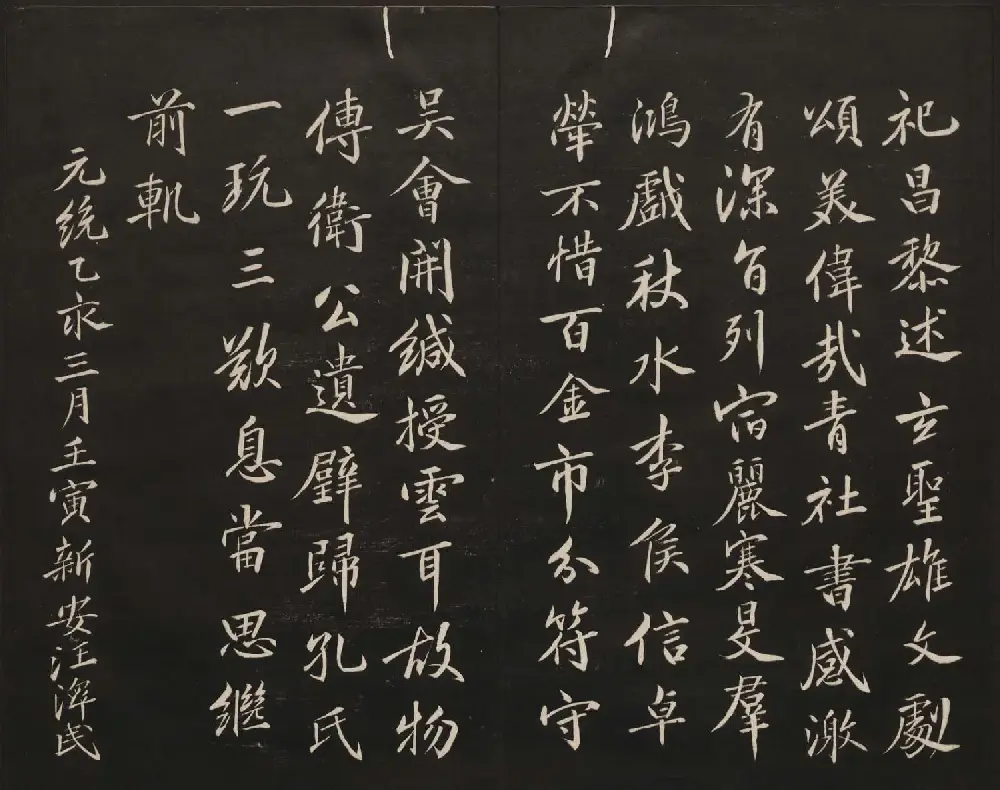 祀昌黎述玄聖雄文劇
頌美偉哉青社書感激
有深旨列宿麗寒旻羣
鴻戲秋水李侯信卓
犖不惜百金市分符守
吳會開緘授雲耳故物
傳衛公遺璧歸孔氏
一玩三歎息當思繼
前軌
元統乙亥三月壬寅新安汪澤民